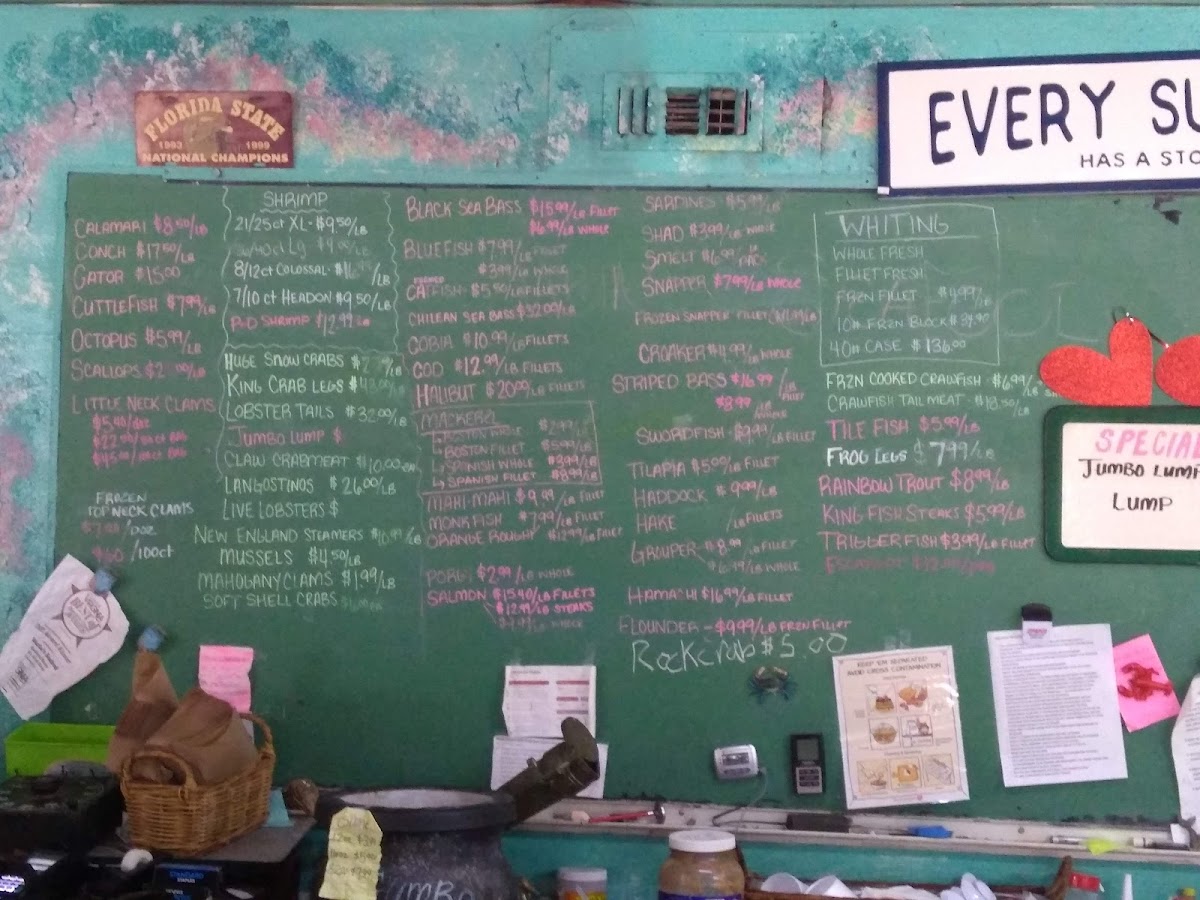 FLORIDA STATE
1993 1999
NATIONAL CHAMPIONS
EVERY SU
HAS A STO
CALAMARI $8.50/LB
CONCH $17.50/LB
GATOR $15.00
CUTTLEFISH $7.99/LB
OCTOPUS $5.99/LB
SCALLOPS
LITTLE NECK CLAMS
FROZEN
TOP NECK CLAMS
/DOZ
$60 /100ct
SHRIMP
21/25ct XL - $9.50/LB
8/12ct COLOSSAL - /LB
7/10 ct HEADON $9.50/LB
P&D SHRIMP $12.99 LB
HUGE SNOW CRABS
KING CRAB LEGS $43.00/LB
LOBSTER TAILS $32.00/LB
JUMBO LUMP $
CLAW CRABMEAT $10.00
LANGOSTINOS $26.00/LB
LIVE LOBSTERS $
NEW ENGLAND STEAMERS $10.99/LB
MUSSELS $4.50/LB
MAHOGANY CLAMS $1.99/LB
SOFT SHELL CRABS
BLACK SEA BASS $15.99/LB FILLET
$6.99/LB WHOLE
BLUEFISH $7.99/LB FILLET
$3.99/LB WHOLE
CATFISH - $5.50/LB FILLETS
CHILEAN SEA BASS $32.00/LB
COBIA $10.99/LB FILLETS
COD $12.99/LB FILLETS
HALIBUT $20.00/LB FILLETS
MACKEREL
↳ BOSTON WHOLE $2.99/LB
↳ BOSTON FILLET $5.99/LB
↳ SPANISH WHOLE $3.99/LB
↳ SPANISH FILLET $8.99/LB
MAHI-MAHI $9.99/LB FILLET
MONKFISH $7.99/LB FILLET
ORANGE ROUGHY $12.99/LB FILLET
PORGY $2.99/LB WHOLE
SALMON $15.40/LB FILLETS
$12.99/LB STEAKS
WHOLE
SARDINES $5.99/LB
SHAD $3.99/LB WHOLE
SMELT $6.99
SNAPPER $7.99/LB WHOLE
FROZEN SNAPPER FILLET $11.99/LB
CROAKER $4.99/LB WHOLE
STRIPED BASS $16.99/LB FILLET
$8.99/LB WHOLE
SWORDFISH - $9.99/LB FILLET
TILAPIA $5.00/LB FILLET
HADDOCK $9.99/LB
HAKE /LB FILLETS
GROUPER - $8.99/LB FILLET
$6.99/LB WHOLE
HAMACHI $16.99/LB FILLET
FLOUNDER - $9.99/LB FRZN FILLET
Rockcrab $5.00
WHITING
WHOLE FRESH
FILLET FRESH
FRZN FILLET $4.99/LB
10# FRZN BLOCK $39.90
40# CASE $136.00
FRZN COOKED CRAWFISH - $6.99/LB
CRAWFISH TAIL MEAT - $18.50/LB
TILE FISH $5.99/LB
FROG LEGS $7.99/LB
RAINBOW TROUT $8.99/LB
KING FISH STEAKS $5.99/LB
TRIGGER FISH $3.99/LB FILLETS
ESCARGOT
SPECIAL
JUMBO LUMP
LUMP